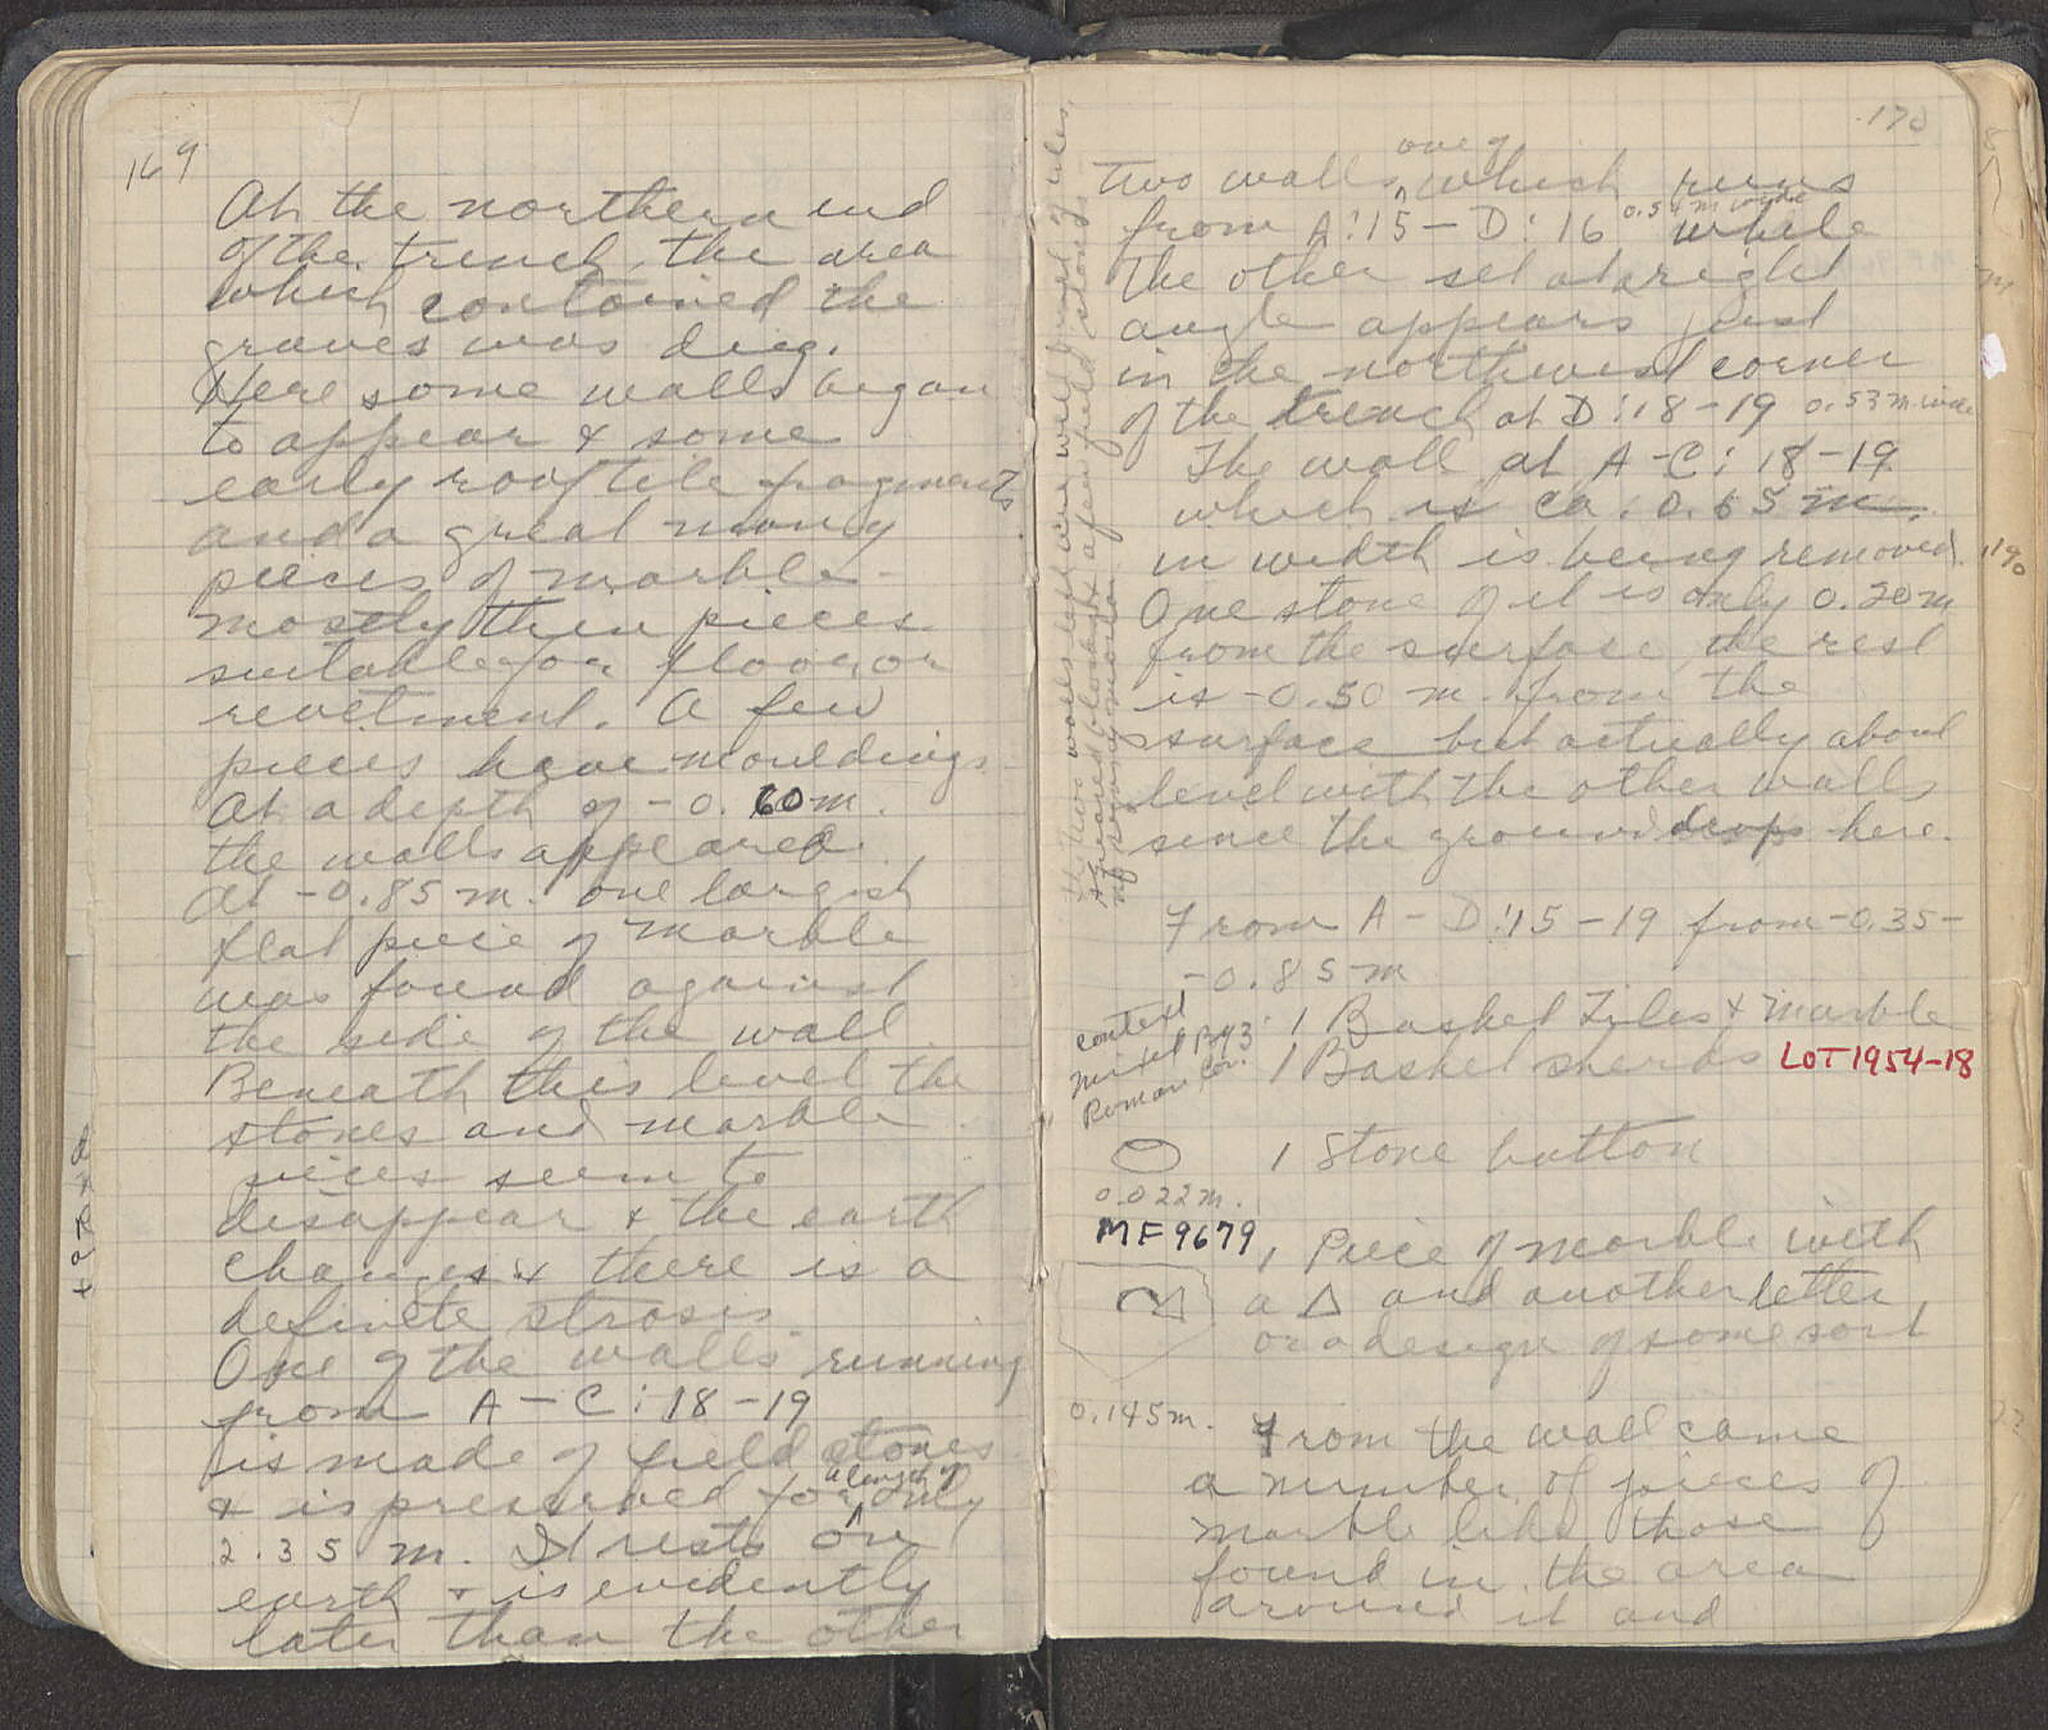 169
At the northern end
of the trench, the area
which contained the
graves was dug.
Here some walls began
to appear & some
early rooftile fragments
and a great many
pieces of marble -
mostly thin pieces
suitable for floor or
revetment. A few
pieces have mouldings
At a depth of -0.60 m.
the walls appeared.
At -0.85 m. one largish
flat piece of marble
was found against
the side of the wall.
Beneath this level the
stones and marble
pieces seem to
disappear & the earth
changes & there is a
definite strosis.
One of the walls running
from A-C:18-19
is made of field stones
a length of
& is preserved for only
2.35 m. It rests on
earth & is evidently
later than the other
170
one of
two walls which runs
0.54 m wide
from A:15-D:16 while
the other set at a right
angle appears just
in the northwest corner
of the trench at D:18-19 0.53 m. wide
The wall at A-C:18-19
which is ca. 0.65 m.
in width is being removed.
One stone of it is only 0.20 m
from the surface, the rest
is -0.50 m. from the
surface but actually about
level with the other walls
since the ground drops here.
the two walls left are well made of
squared blocks & a few field stones
no signs of mortar
From A-D:15-19 from -0.35-
-0.85 m
context
mixed Byz
Roman Cor.
1 Basket Tiles & Marble
1 Basket sherds LOT 1954-18
1 Stone button
0.022 m.
MF 9679
1 Piece of marble with
a Δ and another letter
or a design of some sort
0.145 m.
From the wall came
a number of pieces of
marble like those
found in the area
around it and